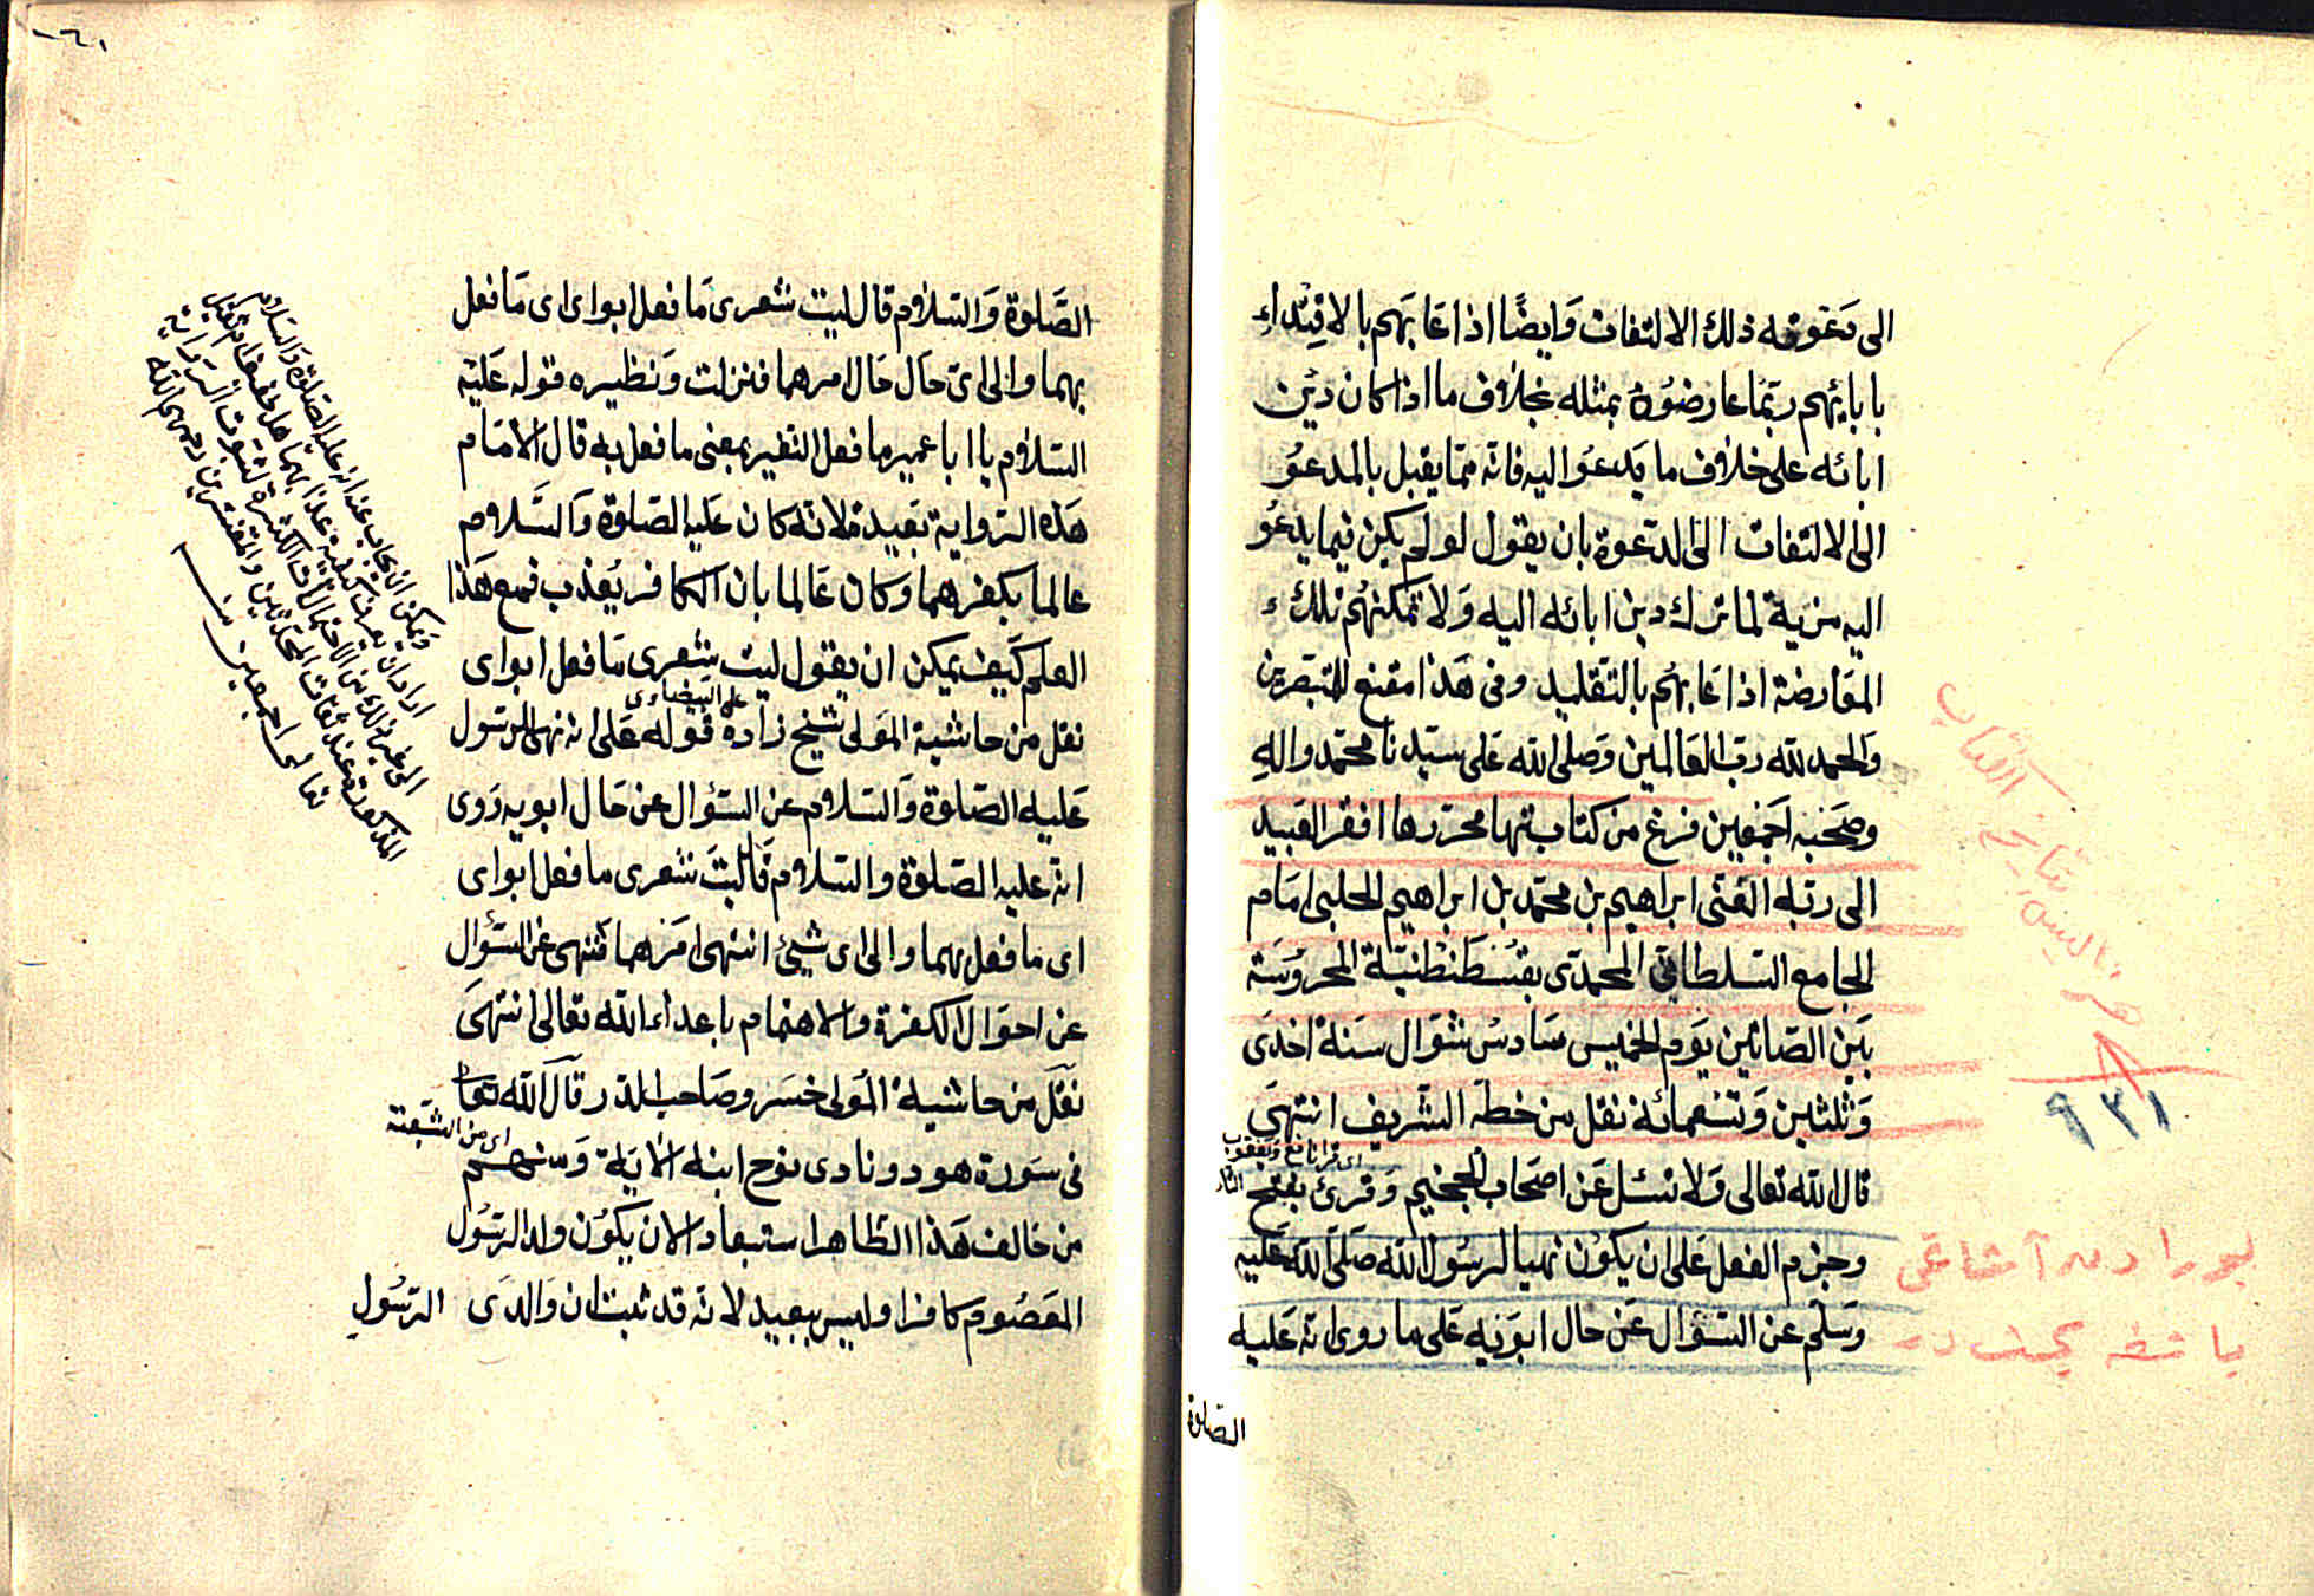 الى دعوته ذلك الالتفات وَايضًا اذا عَابَهم بالاقتداء
بابائهم ربّما عارضوُهُ بمثله بخلاف ما اذا كان دين
ابائه على خلاف ما يَدعوُا اليه فانه ممّا يقبل بالمدعوُ
الى الالتفات الى الدعوة بان يقول لو لم يكن فيما يدعُو
اليه مزية لما ترك دين ابائه اليه وَلا تمكنهُم تلك
المعَارضة اذا عَابهُم بالتقليد وفى هَذا مقنع للمتبصرين
وَالحمد لله ربّ العَالمين وَصلى الله عَلى سيّدنا محمّد واله
وصَحْبِه اَجمَعِين فرغ من كتابتها محرّرها افقر العَبيد
الى ربّه الغنى ابراهيم بن محمّد بن ابراهيم الحلبى امَام
الجامع السلطانى المحمّدى بقُسْطَنْطنيّة المحروُسَة
بَين الصّلاتين يَوم الخميس سَادسُ شوّال سَنة احدَى
وَثلثين وَتسْعمائة نقل من خطه الشريف انتهَى
اى قرا نافع وَيعقوب
قال الله تعالى وَلا تسئل عَن اصحَاب الجحيم وَقرئ بفتح التاء
وجزم الفعل عَلى ان يكوُن نهيا لرسُول الله صَلّى الله عَليه
وسَلم عن السّؤال عَن حال ابوَيه عَلى ما روى انّه عَليه
الصّلوة
تاريخ
٩٣١
الصَّلوة وَالسّلام قال ليت شعرى مَا فعل ابواى اى مَا فعل
بهما والى اىّ حَال حَال امرهما فنزلت وَنظيره قوله عَليه
السّلام يا ابا عمير ما فعل النغير بمعنى ما فعل به قال الامَام
هَذه الرّواية بَعيدة لانّه كان عَليه الصّلوة وَالسّلام
عالما بكفرهما وَكان عَالما بان الكافر يُعذب فمع هَذا
العلم كَيف يمكن ان يقول ليت شعرى مَا فعل ابواى
على البَيضاوى
نقل من حاشية المَولى شيخ زاده قوله عَلى انه نهى الرّسول
عَليه الصّلوة وَالسّلام عن السّؤال عن حَال ابويه رَوى
انّه عليه الصّلوة والسّلام قَال ليتَ شعرى ما فعل ابواى
اى ما فعل بهما والى اى شيئ انتهى امَرهما فنهى عن السّؤال
عن احوَال الكفرة والاهتمام باعداء الله تعالى انتهىَ
نقل من حاشية المَولى خسَرو صَاحب الدّرر قال الله تعَا
اى من الشيعة
فى سَورة هود ونادى نوح ابنه الايَة وَمنهم
من خالف هَذا الظاهر استبعادا لان يكوُن ولد الرّسُول
المعَصُوم كافرا وليس ببعيد لانّه قد ثبت ان وَالدى الرّسُول
وَيمكن ان يجاب عنه انه عليه الصّلوة وَالسّلام
اراد ان يعرف كيفية عذابهما هل خفيفا ام ثقيل
الى غير ذلك من الاحتمالات الكثيرة لثبوت الرّواية
المذكورة عند ثقات المحدّثين والمفسّرين رحمهم الله
تعالى اجمعين